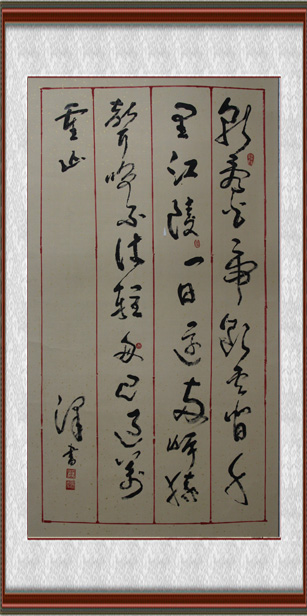 朝辞白帝彩云间千
里江陵一日还两岸猿
声啼不住轻舟已过万
重山
泽书